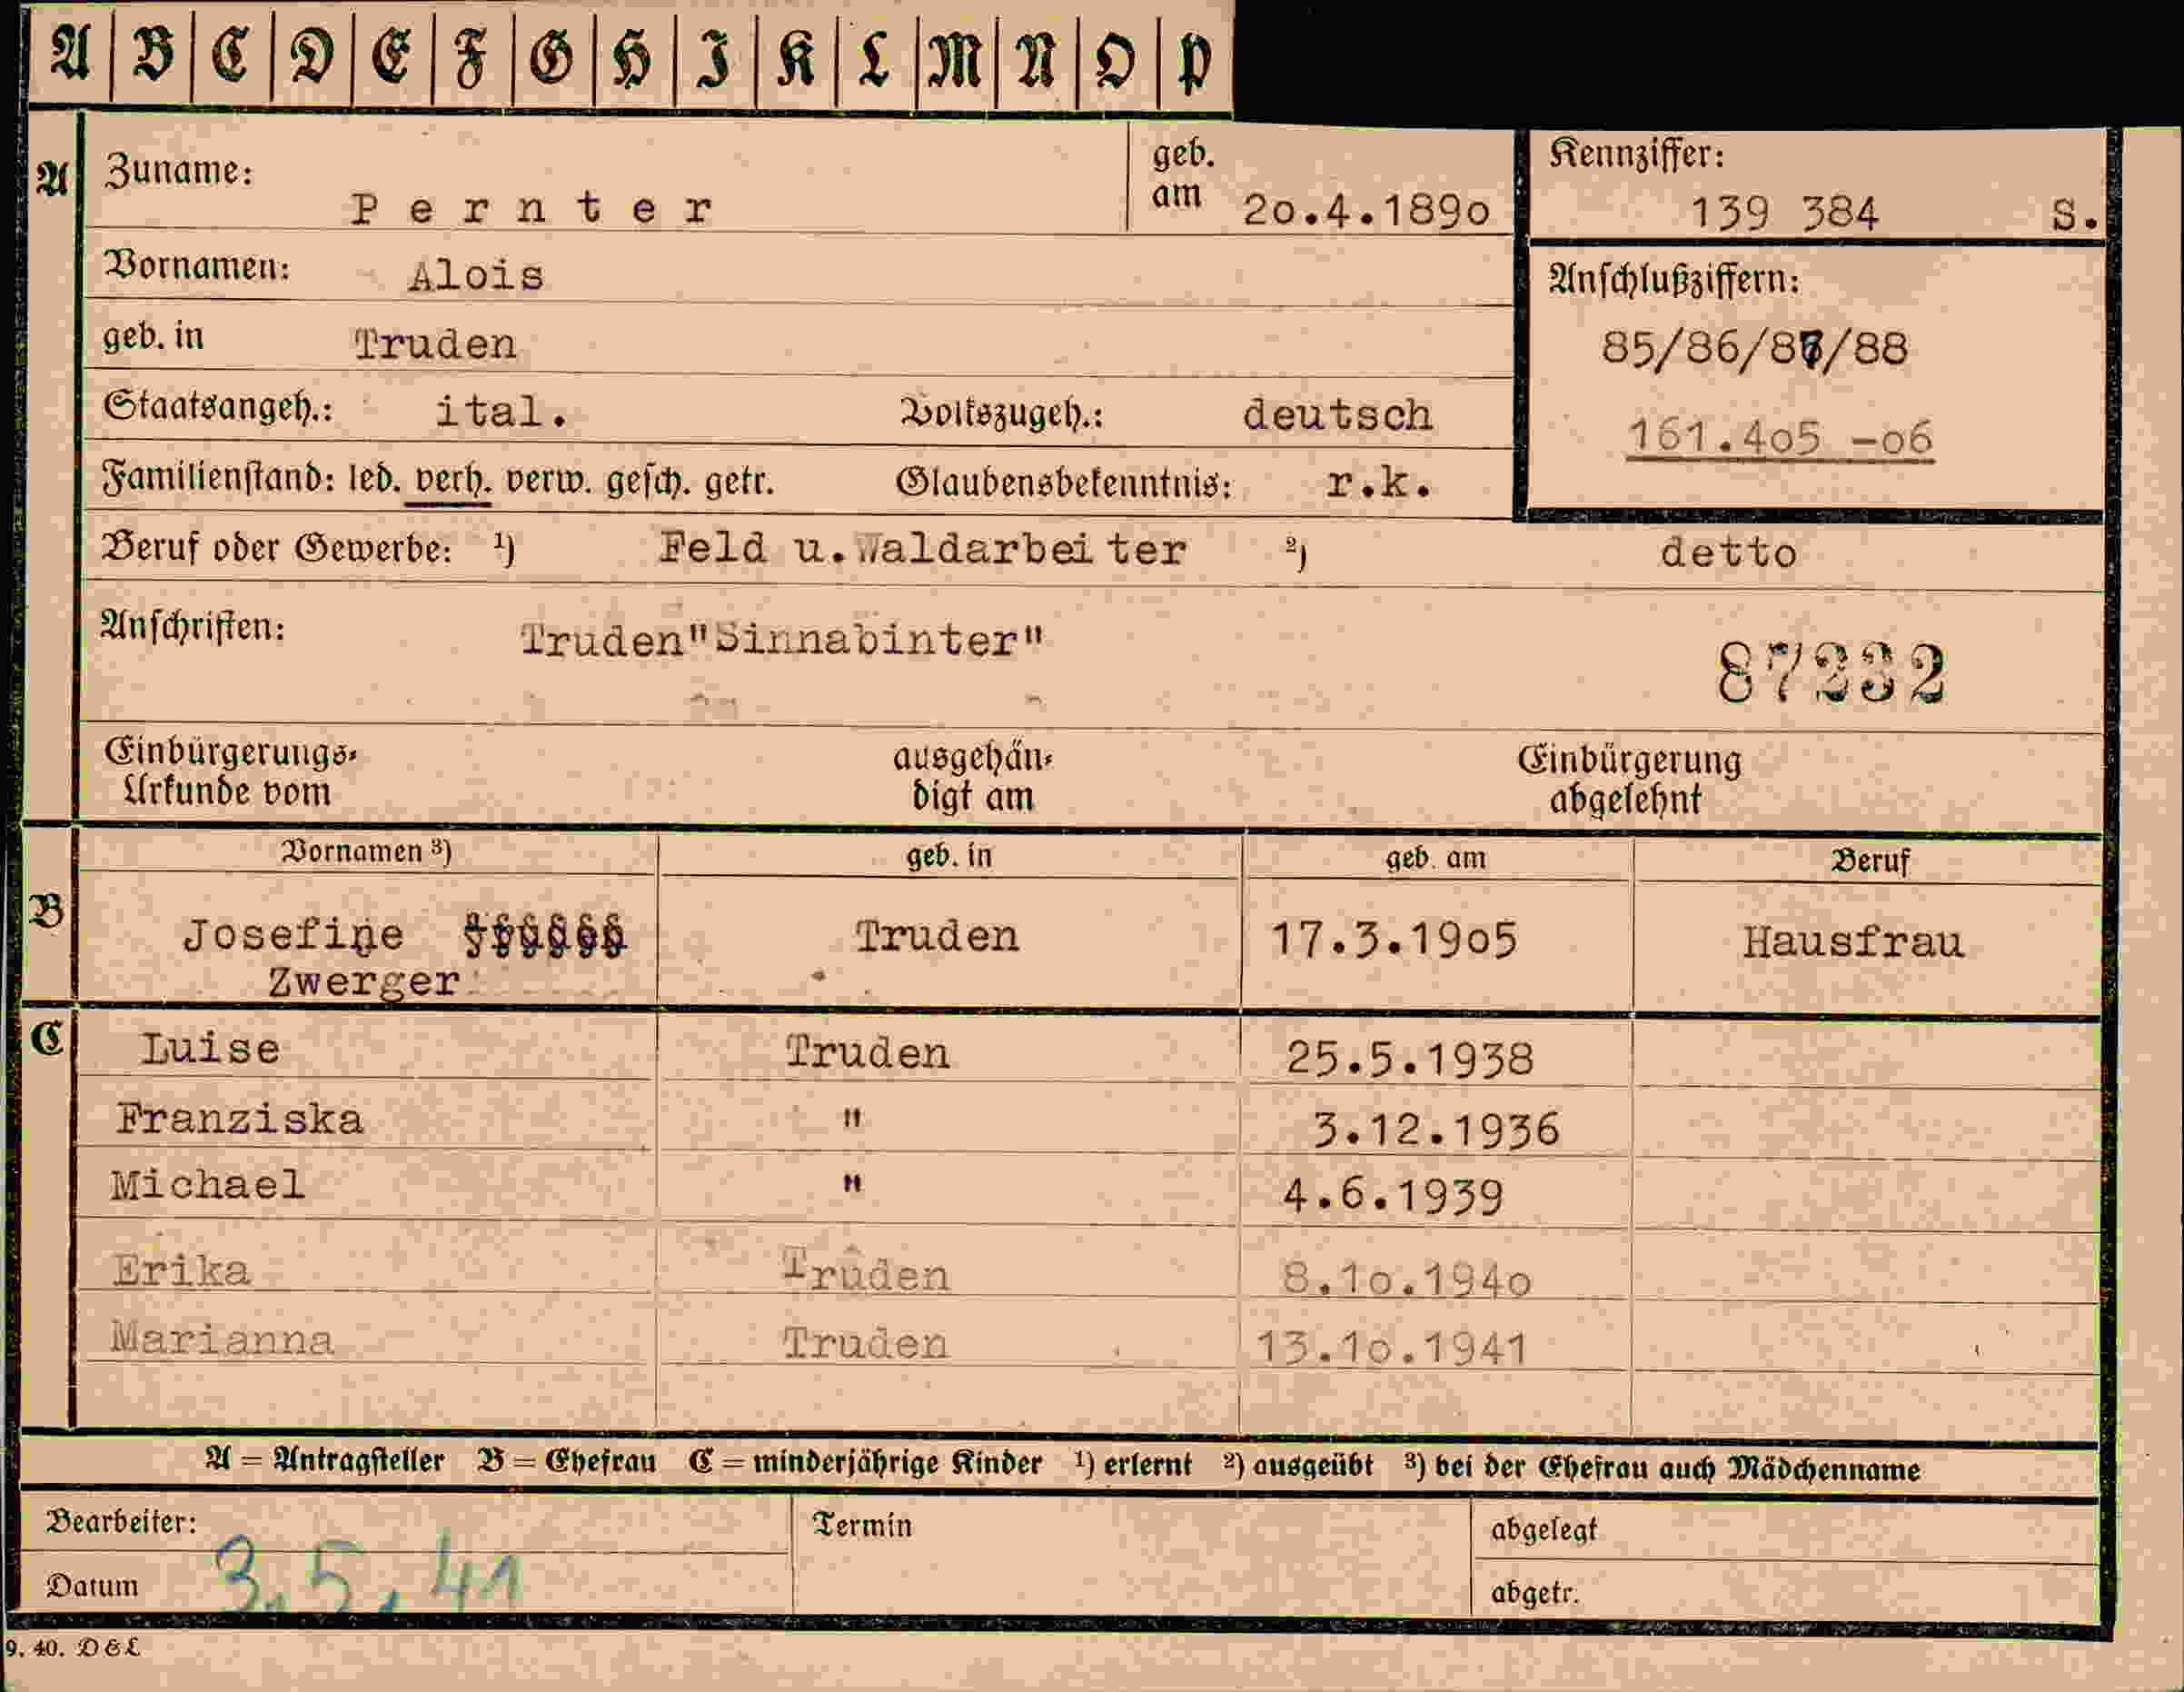 A B C D E F G H I K L M N O P
A Zuname: Pernter geb. am 20.4.1890 Kennziffer: 139 384 S.
Vornamen: Alois Anschlußziffern:
geb. in Truden 85/86/87/88
Staatsangeh.: ital. Volkszugeh.: deutsch 161.405 -06
Familienstand: led. verh. verw. gesch. getr. Glaubensbekenntnis: r.k.
Beruf oder Gewerbe: ¹) Feld u.Waldarbeiter ²) detto
Anschriften: Truden"Sinnabinter" 87232
Einbürgerungs- ausgehän- Einbürgerung
Urkunde vom digt am abgelehnt
Vornamen ³) geb. in geb. am Beruf
B Josefine Truden 17.3.1905 Hausfrau
Zwerger
C Luise Truden 25.5.1938
Franziska " 3.12.1936
Michael " 4.6.1939
Erika Truden 8.10.1940
Marianna Truden 13.10.1941
A = Antragsteller B = Ehefrau C = minderjährige Kinder ¹) erlernt ²) ausgeübt ³) bei der Ehefrau auch Mädchenname
Bearbeiter: Termin abgelegt
Datum 3.5.41 abgetr.
9. 40. D & L